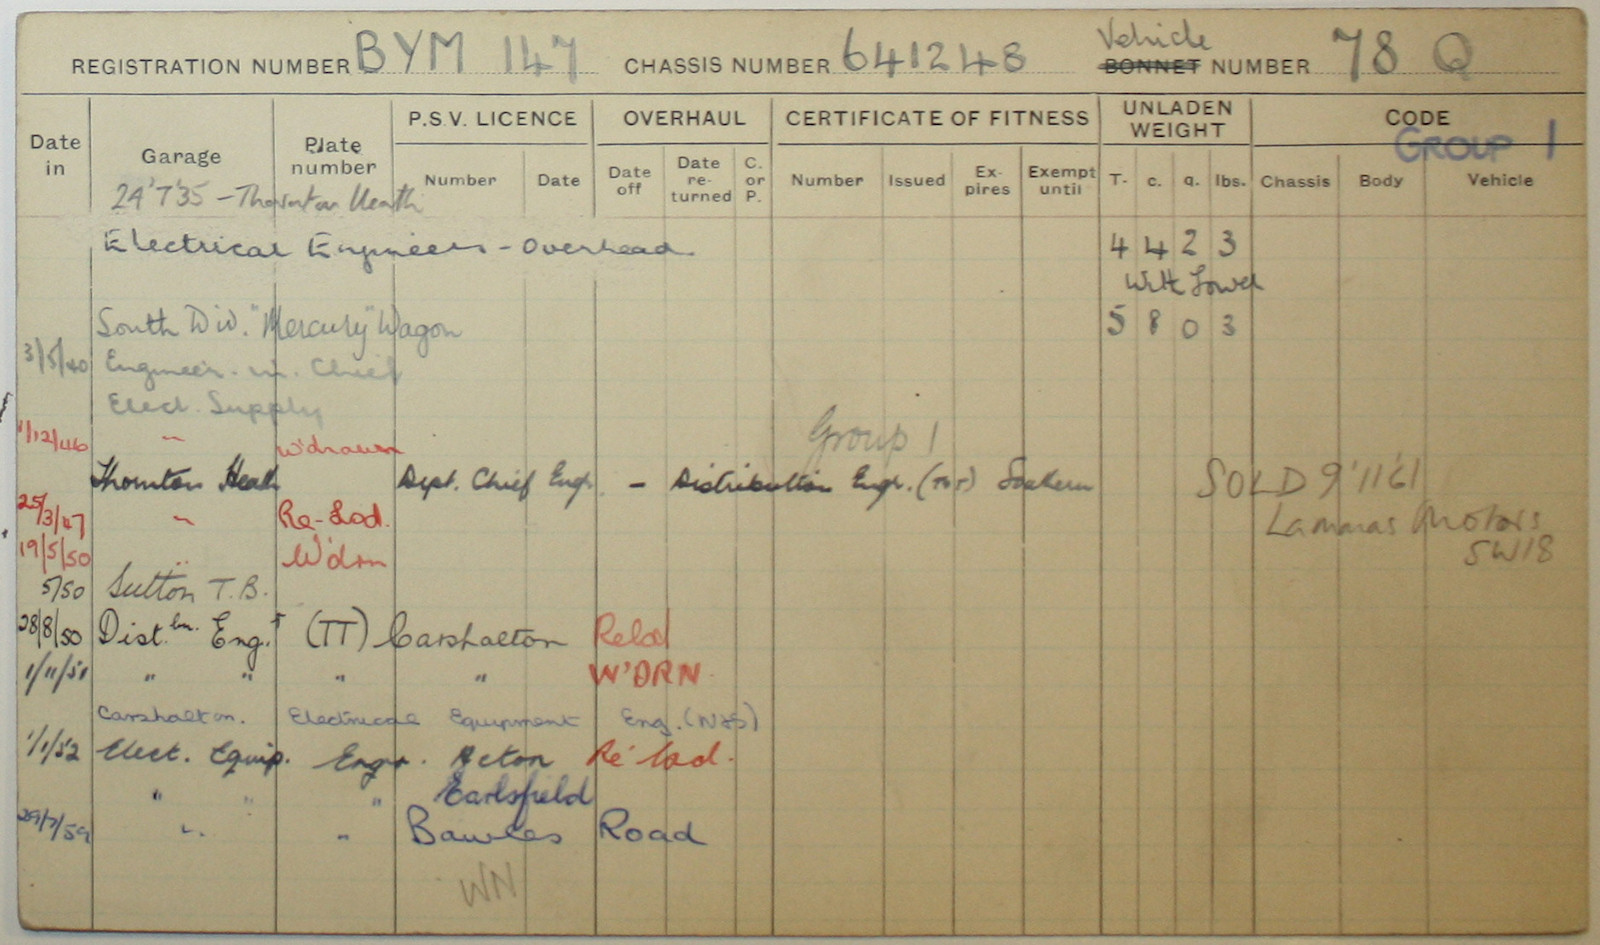 REGISTRATION NUMBER BYM 147 CHASSIS NUMBER 641248 Vehicle BONNET NUMBER 78 Q
Date in Garage Plate number P.S.V. LICENCE OVERHAUL CERTIFICATE OF FITNESS UNLADEN WEIGHT CODE
GROUP 1
Number Date Date off Date re-turned C. or P. Number Issued Ex-pires Exempt until T. c. q. lbs. Chassis Body Vehicle
24'7'35 - Thornton Heath
Electrical Engineers - Overhead 4 4 2 3
With Tower
South Div. "Mercury" Wagon 5 8 0 3
3/5/40 Engineer. in. Chief
Elect. Supply
1/12/46 " W'drawn Group 1
Thornton Heath Dept. Chief Engr. - Distribution Engr. (T&T) Southern SOLD 9'11'61
25/3/47 " Re-Lod. Lammas Motors
19/5/50 " W'drn SW18
5/50 Sutton T.B.
28/8/50 Dist.bn. Eng.r (TT) Carshalton Relod
1/11/51 " " " " W'DRN
Carshalton. Electrical Equipment Eng. (N&S)
1/1/52 Elect. Equip. Engr. Acton Re'lod.
" " " Earlsfield
29/7/59 " " Bawles Road
WN